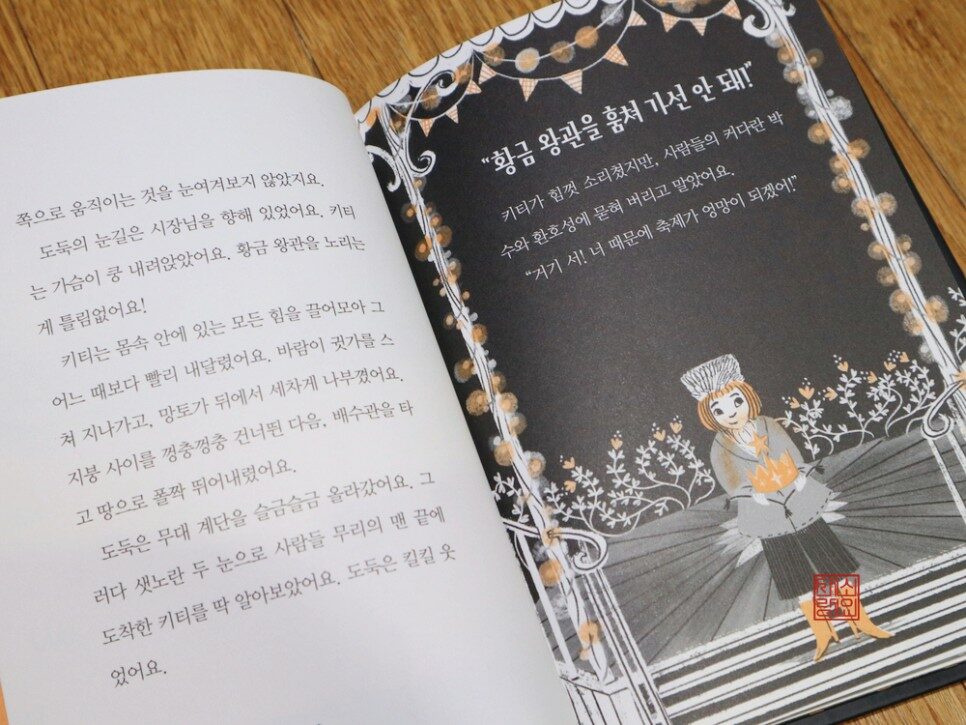 쪽으로 움직이는 것을 눈여겨보지 않았지요.
도둑의 눈길은 시장님을 향해 있었어요. 키티
는 가슴이 쿵 내려앉았어요. 황금 왕관을 노리는
게 틀림없어요!
키티는 몸속 안에 있는 모든 힘을 끌어모아 그
어느 때보다 빨리 내달렸어요. 바람이 귓가를 스
쳐 지나가고, 망토가 뒤에서 세차게 나부꼈어요.
지붕 사이를 껑충껑충 건너뛴 다음, 배수관을 타
고 땅으로 폴짝 뛰어내렸어요.
도둑은 무대 계단을 슬금슬금 올라갔어요. 그
러다 샛노란 두 눈으로 사람들 무리의 맨 끝에
도착한 키티를 딱 알아보았어요. 도둑은 킬킬 웃
었어요.
“황금 왕관을 훔쳐 가선 안 돼!”
키티가 힘껏 소리쳤지만, 사람들의 커다란 박
수와 환호성에 묻혀 버리고 말았어요.
“거기 서! 너 때문에 축제가 엉망이 되겠어!”